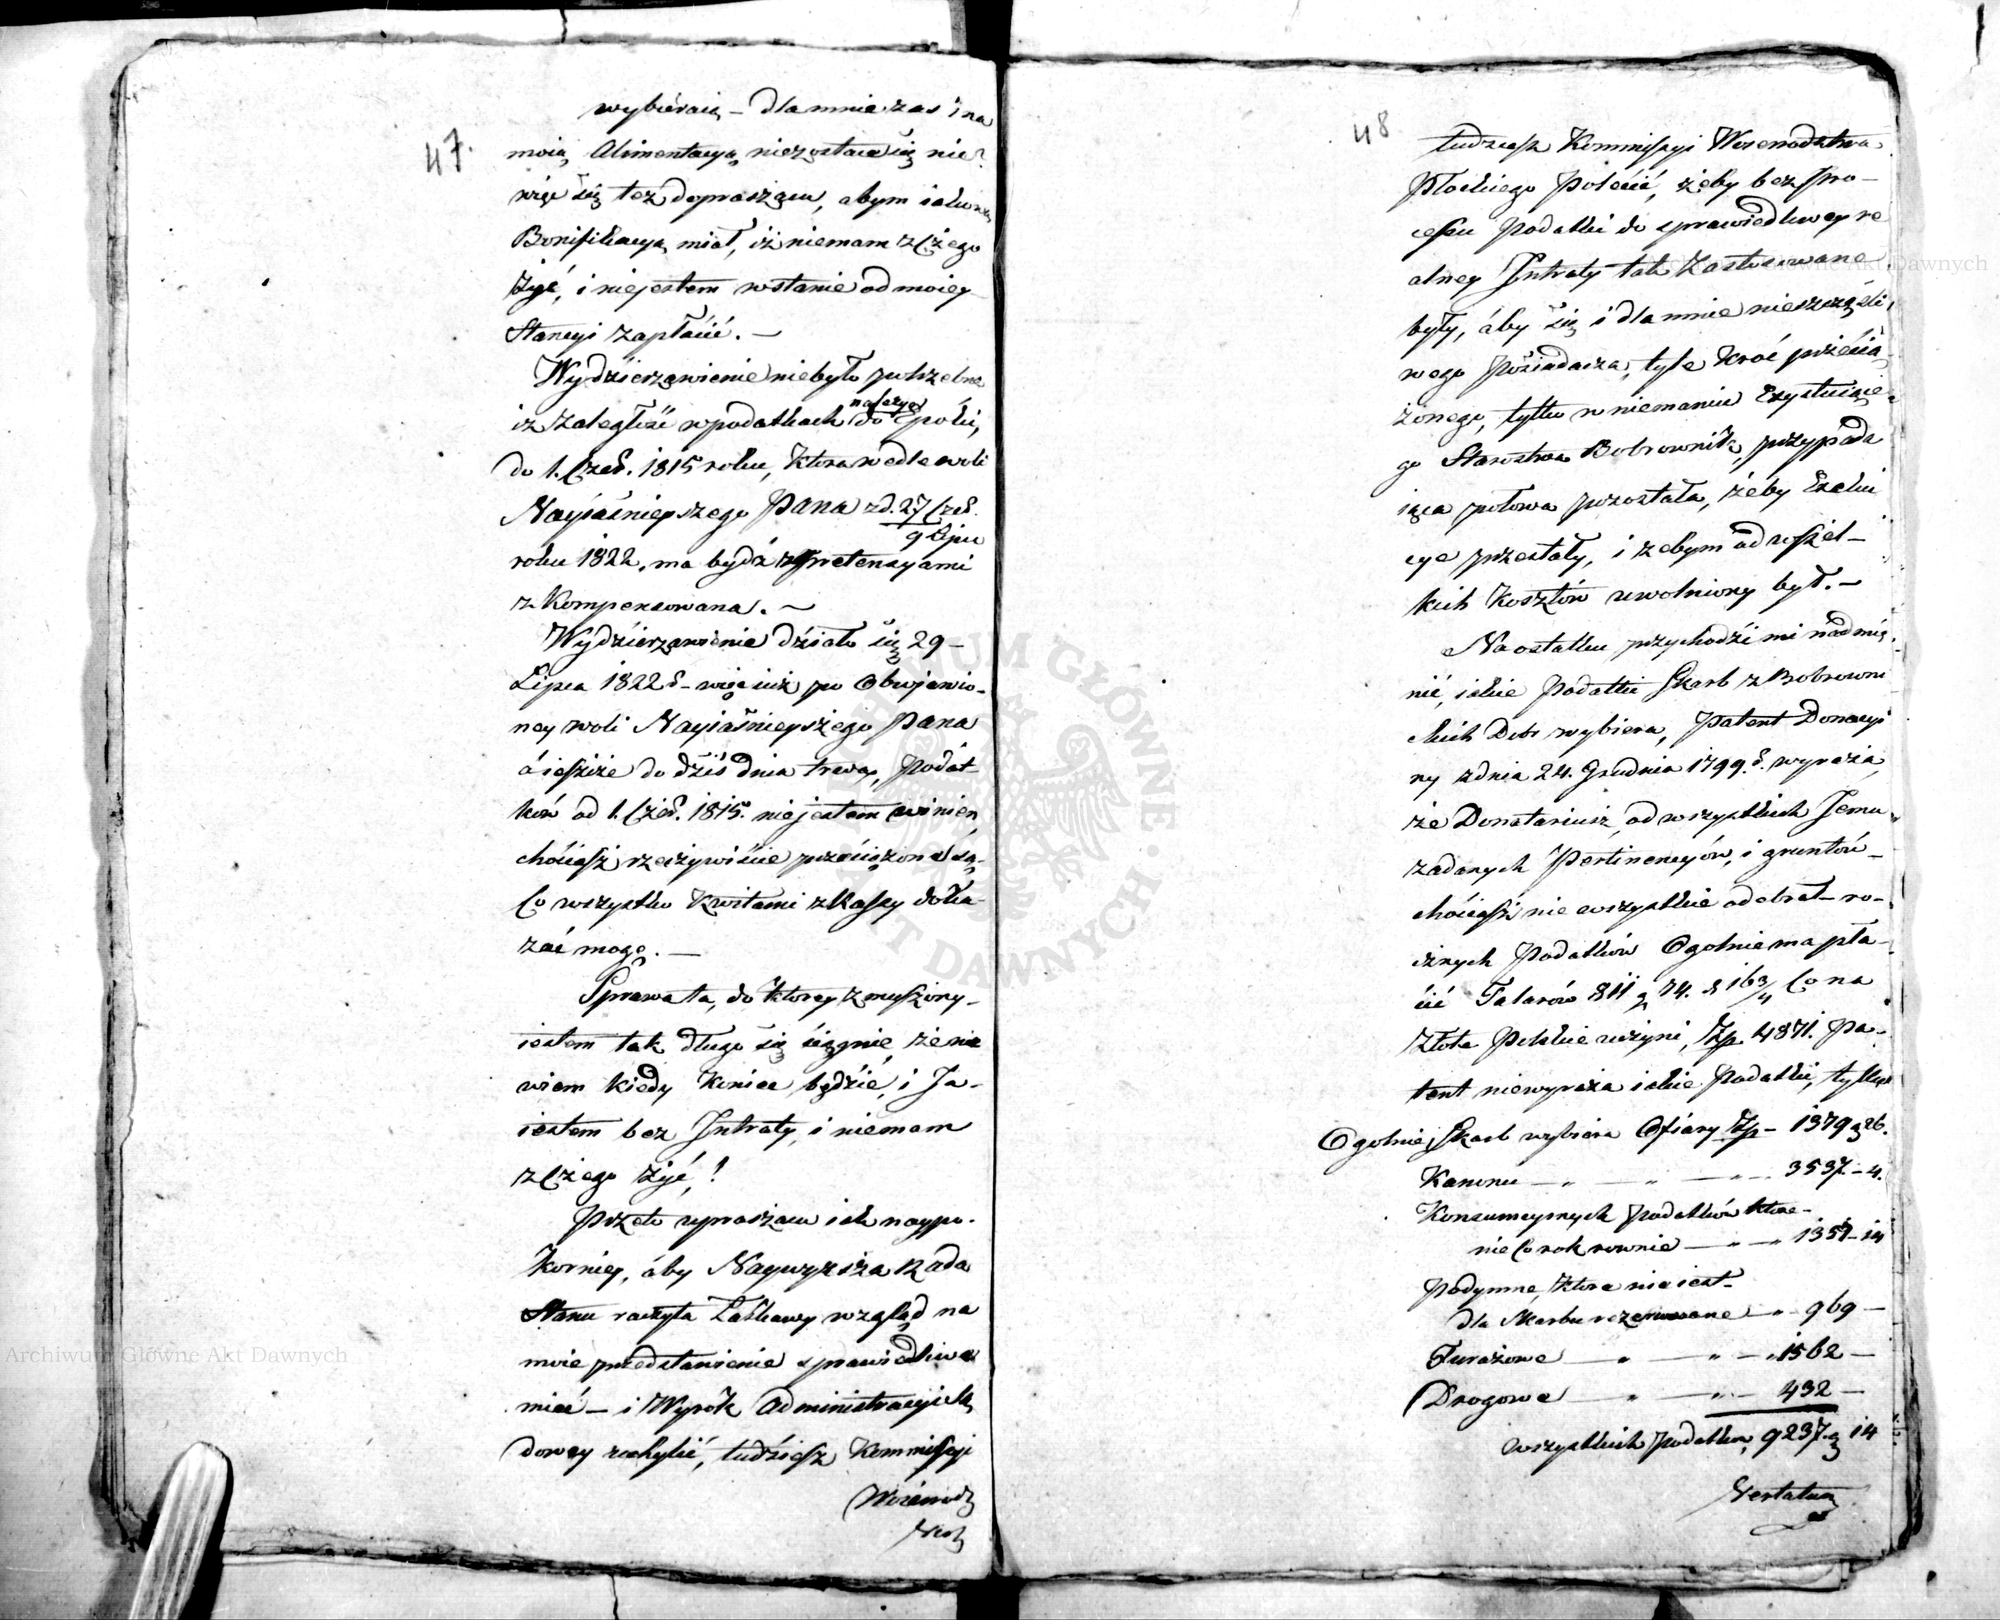 47.
wybieraią – dla mnie zas i na
moią Alimentacyą niezostaie się nic?
więc się tez dopraszam, abym iakową
Bonifikacyą miał, iż niemam z Czego
żyć, i niejestem wstanie od moiey
Stancyi zapłacić. –
Wydzierzawienie niebyło potrzebne
iz zaległość w podatkach należy do Epoki,
do 1. Czer. 1815 roku, która wedle woli
Nayiaśnieyszego Pana z d. 27 Czer.
9 Lipca
roku 1822, ma bydź z pretensyami
z Kompensowana. –
Wydzierzawienie działo się 29 –
Lipca 1822 r – więc iuż po Obwjawio-
ney woli Nayiaśnieyszego Pana
a ieszcze do dziś dnia trwa, Podat-
ków od 1. Czer. 1815. niejestem winien,
chociasz rzeczywiście przeciążone są –
Co wszystko Kwitami z Kassy doka-
zać mogę. –
Sprawa ta, do ktorey zmuszony –
iestem tak długo się ciągnie, że nie
wiem kiedy koniec będzie, i Ja –
iestem bez Intraty, i niemam
z Czego żyć,!
Przeto upraszam iak naypo-
korniey, áby Naywyższa Rada
Stanu raczyła Łaskawy wzgląd na
moie przedstawienie sprawiedliwe
mieć – i Wyrok Administracyiesą
dowey uchylić, tudziesz Kommissyi
Woiewodz
Vert
48
tudziesz Kommissyi Woiewodztwa
Płockiego Polécić, żeby bez Pro –
cessu Podatki do sprawiedliwey re
alney Intraty tak Zastosowane
były, áby się i dla mnie nieszczęśli,
wego Posiadacza, tyle kroć przecią
żonego, tylko w niemaniu Exystuiące-
go Starostwa Bobrownik, przypada
iąca połowa pozostała, żeby Exeku
cye przestały, i zebym od wszel –
kich Kosztów uwolniony był. –
Na ostatku przychodzi mi nadmie-
nić, iakie Podatki Skarb z Bobrowni
ckich Dobr wybiera, Patent Donacyi
ny z dnia 24. Grudnia 1799. r. wyraża,
że Donatariusz, od wszystkich Jemu
zadanych Pertinencyów, i gruntów –
chóciasz nie wszystkie odebrał – ro-
cznych Podatków Ogolnie ma pła-
cić Talarów 811 g 74. d 16 3/4 Co na
Złote Polskie uczyni, Zp. 4871. Pa-
tent niewyraża iakie Podatki, tylko
Ogolnie, Skarb wybiera Ofiary Zp – 1379 g 26.
Kanonu – „ – „ – „ – 3537. – 4.
Konsumcyinych Podatków które –
nie Co rok rownie – „ – „ 1357 – 14
Podymne, która nie iest –
dla Skarbu rezerwowane – „ – 969 –
Furażowe – „ – „ – „ 1562 –
Drogowe – „ – „ – 432 –
wszystkich Podatków, 9237. g 14
Vertatur